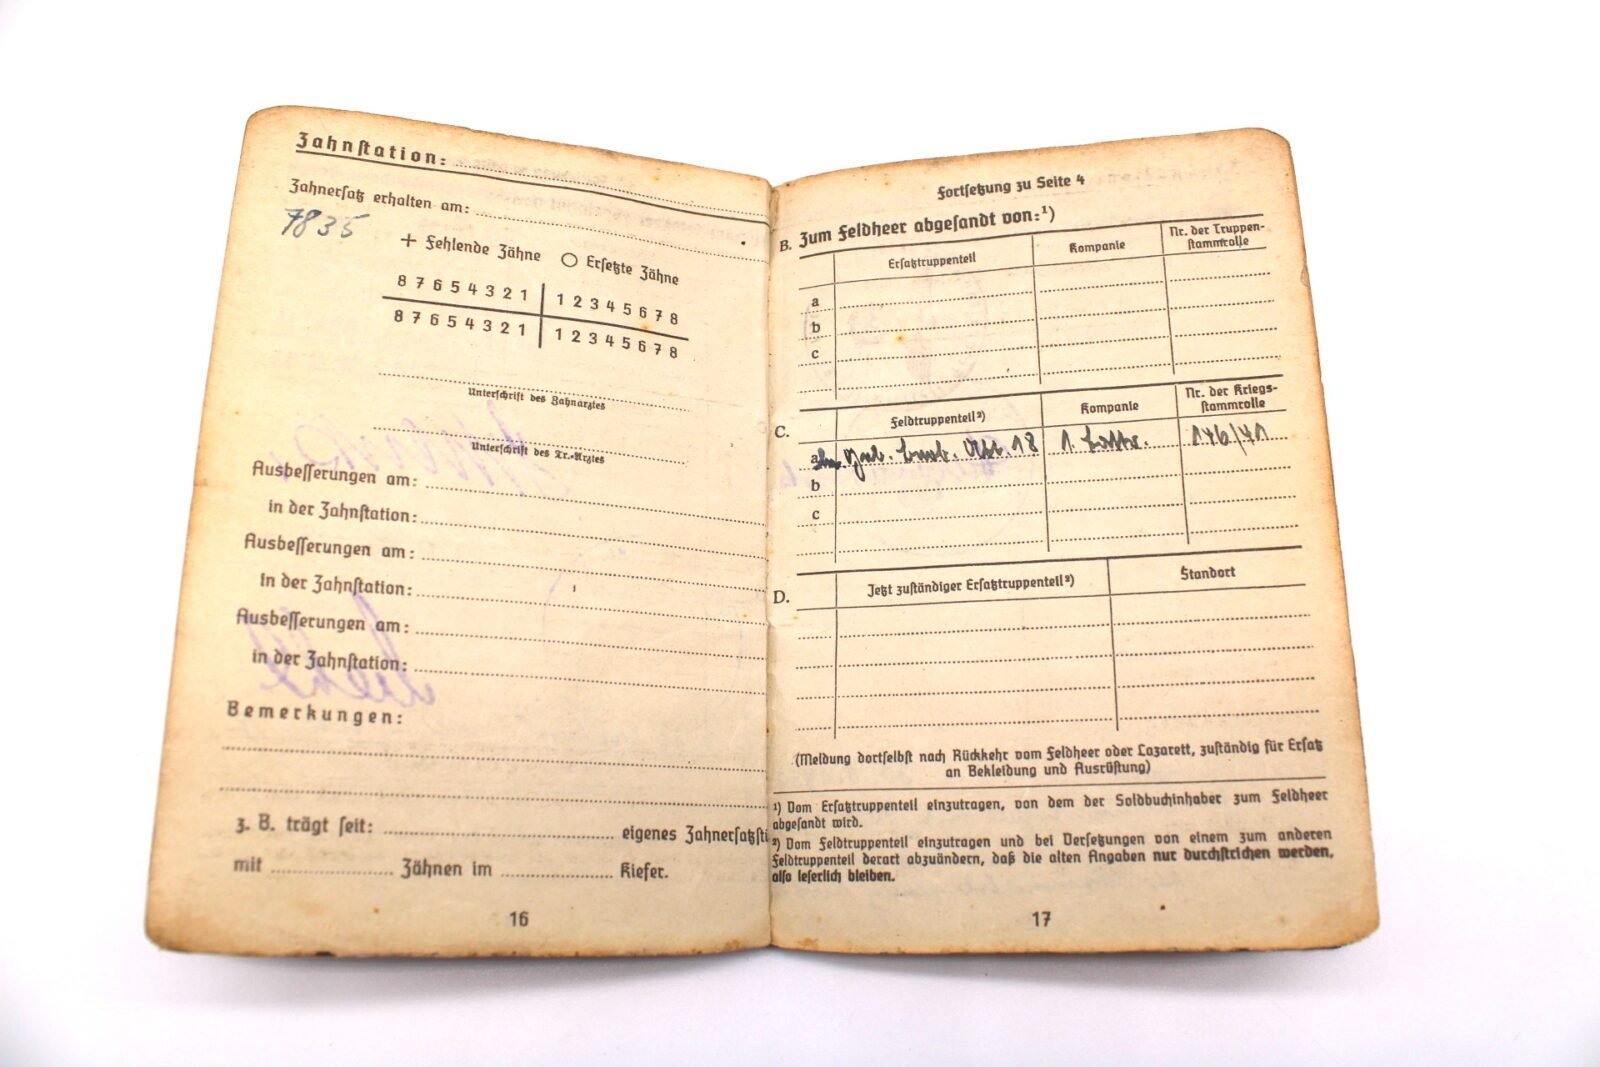 Zahnstation:
Zahnersatz erhalten am:
7835
+ Fehlende Zähne ○ Ersetzte Zähne
8 7 6 5 4 3 2 1 1 2 3 4 5 6 7 8
8 7 6 5 4 3 2 1 1 2 3 4 5 6 7 8
Unterschrift des Zahnarztes
Unterschrift des Tr.-Arztes
Ausbesserungen am:
in der Zahnstation:
Ausbesserungen am:
in der Zahnstation:
Ausbesserungen am:
in der Zahnstation:
Bemerkungen:
z. B. trägt seit: eigenes Zahnersatzstü
mit Zähnen im Kiefer.
16
Fortsetzung zu Seite 4
B. Zum Feldheer abgesandt von:¹)
Ersatztruppenteil Kompanie Nr. der Truppen-
stammrolle
a
b
c
C. Feldtruppenteil²) Kompanie Nr. der Kriegs-
stammrolle
a Abt. 18 1. Battr. 146/41
b
c
D. Jetzt zuständiger Ersatztruppenteil²) Standort
(Meldung dortselbst nach Rückkehr vom Feldheer oder Lazarett, zuständig für Ersatz
an Bekleidung und Ausrüstung)
¹) Vom Ersatztruppenteil einzutragen, von dem der Soldbuchinhaber zum Feldheer
abgesandt wird.
²) Vom Feldtruppenteil einzutragen und bei Versetzungen von einem zum anderen
Feldtruppenteil derart abzuändern, daß die alten Angaben nur durchstrichen werden,
also leserlich bleiben.
17